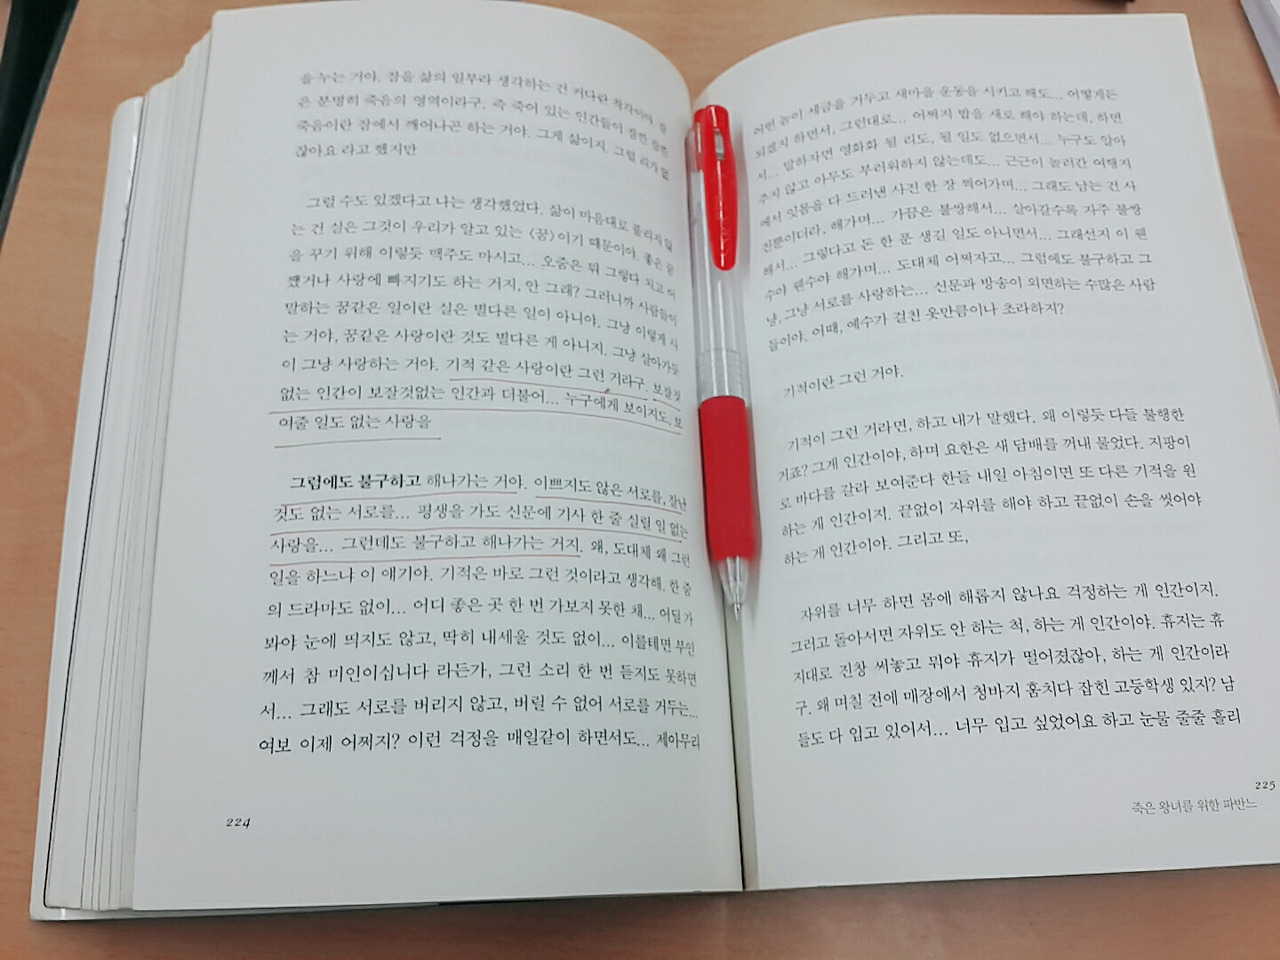 을 누는 거야. 잠을 삶의 일부라 생각하는 건 커다란 착각이야. 잠
은 분명히 죽음의 영역이라구. 즉 죽어 있는 인간들이 잠깐 잠깐
죽음이란 잠에서 깨어나곤 하는 거야. 그게 삶이지. 그럴 리가 없
잖아요 라고 했지만
그럴 수도 있겠다고 나는 생각했었다. 삶이 마음대로 풀리지 않
는 건 실은 그것이 우리가 알고 있는 〈꿈〉이기 때문이야. 좋은 꿈
을 꾸기 위해 이렇듯 맥주도 마시고... 오줌은 뭐 그렇다 치고 어
쨌거나 사랑에 빠지기도 하는 거지, 안 그래? 그러니까 사람들이
말하는 꿈같은 일이란 실은 별다른 일이 아니야. 그냥 이렇게 사
는 거야, 꿈같은 사랑이란 것도 별다른 게 아니지. 그냥 살아가듯
이 그냥 사랑하는 거야. 기적 같은 사랑이란 그런 거라구. 보잘것
없는 인간이 보잘것없는 인간과 더불어... 누구에게 보이지도, 보
여줄 일도 없는 사랑을
그럼에도 불구하고 해나가는 거야. 이쁘지도 않은 서로를, 잘난
것도 없는 서로를... 평생을 가도 신문에 기사 한 줄 실릴 일 없는
사랑을... 그런데도 불구하고 해나가는 거지. 왜, 도대체 왜 그런
일을 하느냐 이 얘기야. 기적은 바로 그런 것이라고 생각해. 한 줄
의 드라마도 없이... 어디 좋은 곳 한 번 가보지 못한 채... 어딜 가
봐야 눈에 띄지도 않고, 딱히 내세울 것도 없이... 이를테면 부인
께서 참 미인이십니다 라든가, 그런 소리 한 번 듣지도 못하면
서... 그래도 서로를 버리지 않고, 버릴 수 없어 서로를 거두는...
여보 이제 어쩌지? 이런 걱정을 매일같이 하면서도... 제아무리
224
어떤 놈이 세금을 거두고 새마을 운동을 시키고 해도... 어떻게든
되겠지 하면서, 그런대로... 어쩌지 밥을 새로 해야 하는데, 하면
서... 말하자면 영화화 될 리도, 될 일도 없으면서... 누구도 알아
주지 않고 아무도 부러워하지 않는데도... 근근이 놀러간 여행지
에서 잇몸을 다 드러낸 사진 한 장 찍어가며... 그래도 남는 건 사
진뿐이더라, 해가며... 가끔은 불쌍해서... 살아갈수록 자주 불쌍
해서... 그렇다고 돈 한 푼 생길 일도 아니면서... 그래선지 이 웬
수야 웬수야 해가며... 도대체 어쩌자고... 그럼에도 불구하고 그
냥, 그냥 서로를 사랑하는... 신문과 방송이 외면하는 수많은 사람
들이야. 어때, 예수가 걸친 옷만큼이나 초라하지?
기적이란 그런 거야.
기적이 그런 거라면, 하고 내가 말했다. 왜 이렇듯 다들 불행한
거죠? 그게 인간이야, 하며 요한은 새 담배를 꺼내 물었다. 지팡이
로 바다를 갈라 보여준다 한들 내일 아침이면 또 다른 기적을 원
하는 게 인간이지. 끝없이 자위를 해야 하고 끝없이 손을 씻어야
하는 게 인간이야. 그리고 또,
자위를 너무 하면 몸에 해롭지 않나요 걱정하는 게 인간이지.
그러고 돌아서면 자위도 안 하는 척, 하는 게 인간이야. 휴지는 휴
지대로 진창 써놓고 뭐야 휴지가 떨어졌잖아, 하는 게 인간이라
구. 왜 며칠 전에 매장에서 청바지 훔치다 잡힌 고등학생 있지? 남
들도 다 입고 있어서... 너무 입고 싶었어요 하고 눈물 줄줄 흘리
225
죽은 왕녀를 위한 파반느